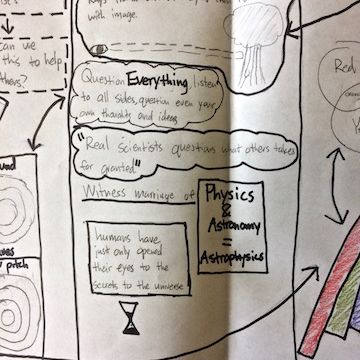 with image.
can we
this to help
others?
Question Everything, listen
to all sides, question even your
own thoughts and ideas
"Real Scientists questions what others takes
for granted"
Witness marriage of
Physics
&
Astronomy
=
Astrophysics
humans have
just only opened
their eyes to the
secrets to the universe
pitch
Red